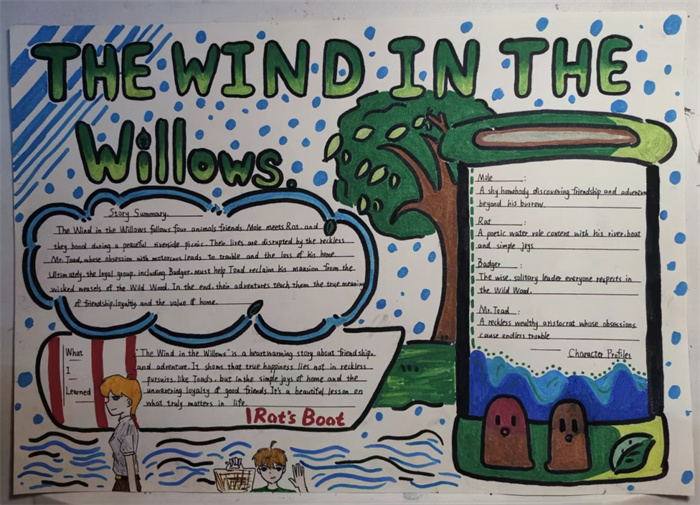 THE WIND IN THE
Willows.
Story Summary
The Wind in the Willows follows four animals friends. Mole meets Rat, and
they bond during a peaceful riverside picnic. Their lives are disrupted by the reckless
Mr. Toad, whose obsession with motorcars leads to trouble and the loss of his home.
Ultimately, the loyal group, including Badger, must help Toad reclaim his mansion from the
wicked weasels of the Wild Wood. In the end, their adventures teach them the true meaning
of friendship, loyalty and the value of home.
What
I
Learned
"The Wind in the Willows" is a heartwarming story about friendship
and adventure. It shows that true happiness lies not in reckless
pursuits like Toad's, but in the simple joys of home and the
unwavering loyalty of good friends. It's a beautiful lesson on
what truly matters in life.
Rat's Boat
Mole :
A shy homebody discovering friendship and adventure
beyond his burrow.
Rat :
A poetic water vole content with his river, boat
and simple joys.
Badger :
The wise, solitary leader everyone respects in
the Wild Wood.
Mr. Toad :
A reckless wealthy aristocrat whose obsessions
cause endless trouble
Character Profiles